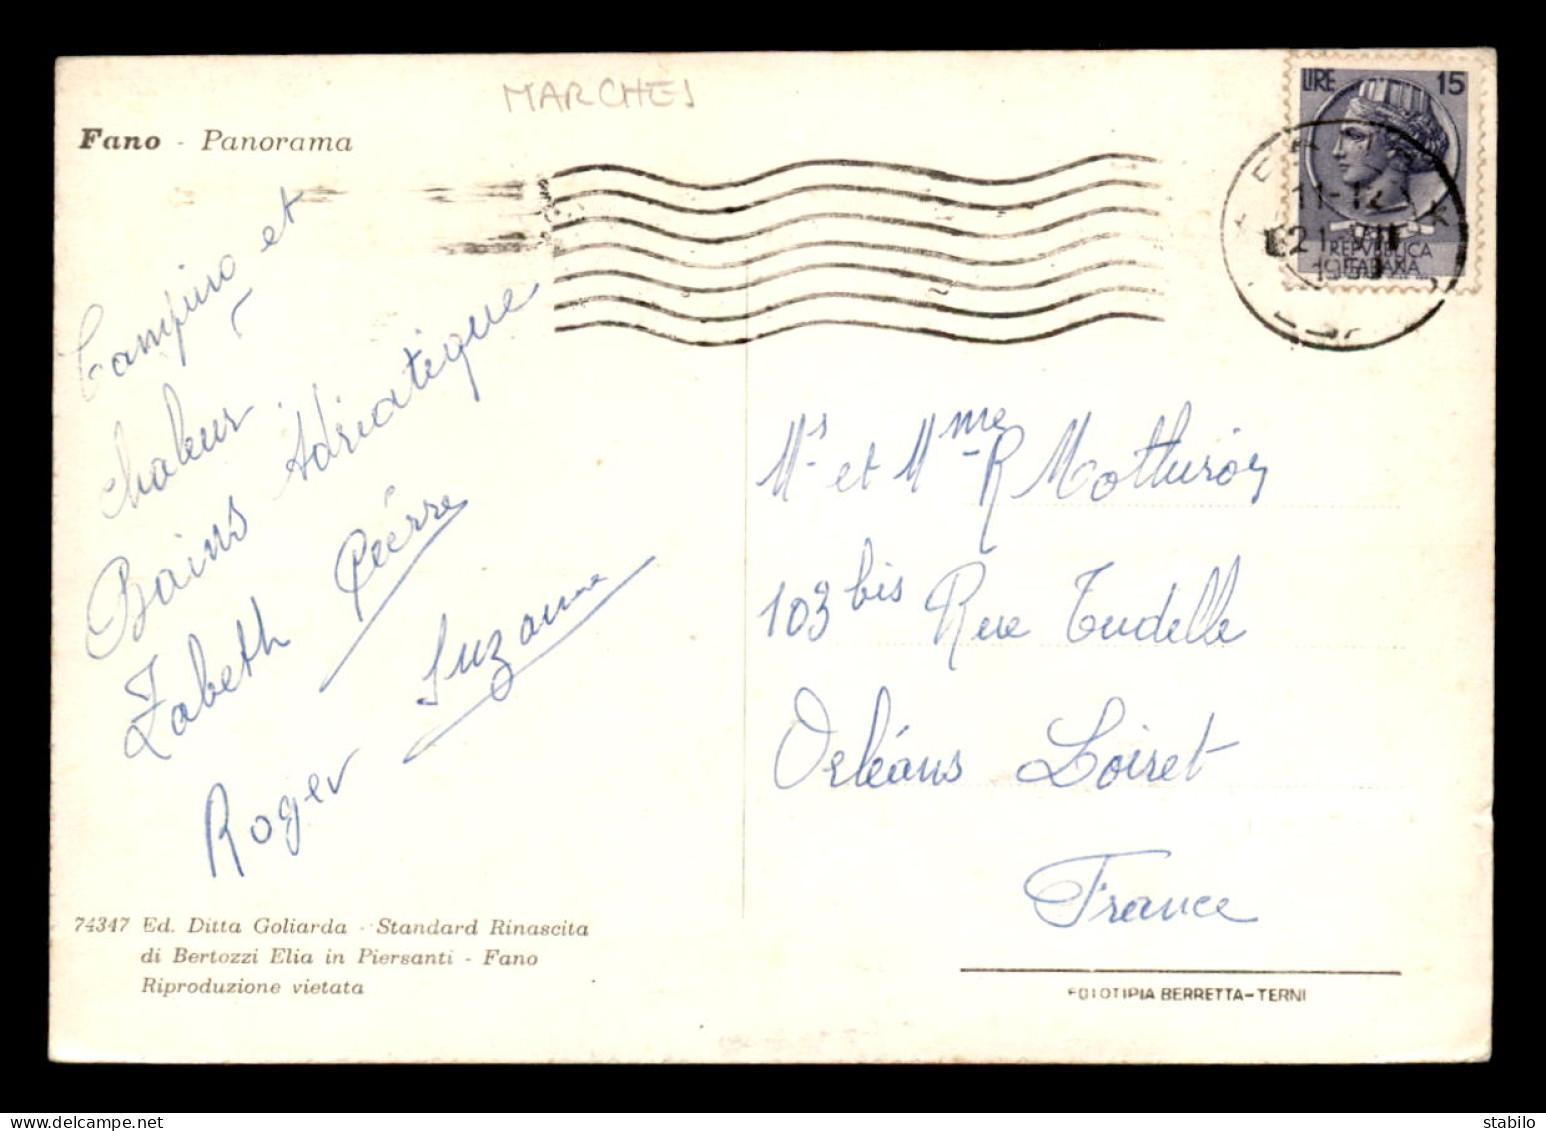 MARCHES
Fano - Panorama
LIRE 15
REPVBBLICA
ITALIANA
11-12
21
Camping et
chaleur
Bains Adriatique
Zabeth Pierre
Roger Suzanne
Ms et Mme R Mothiron
103 bis Rue Tudelle
Orléans Loiret
France
74347 Ed. Ditta Goliarda - Standard Rinascita
di Bertozzi Elia in Piersanti - Fano
Riproduzione vietata
FOTOTIPIA BERRETTA-TERNI
stabilo